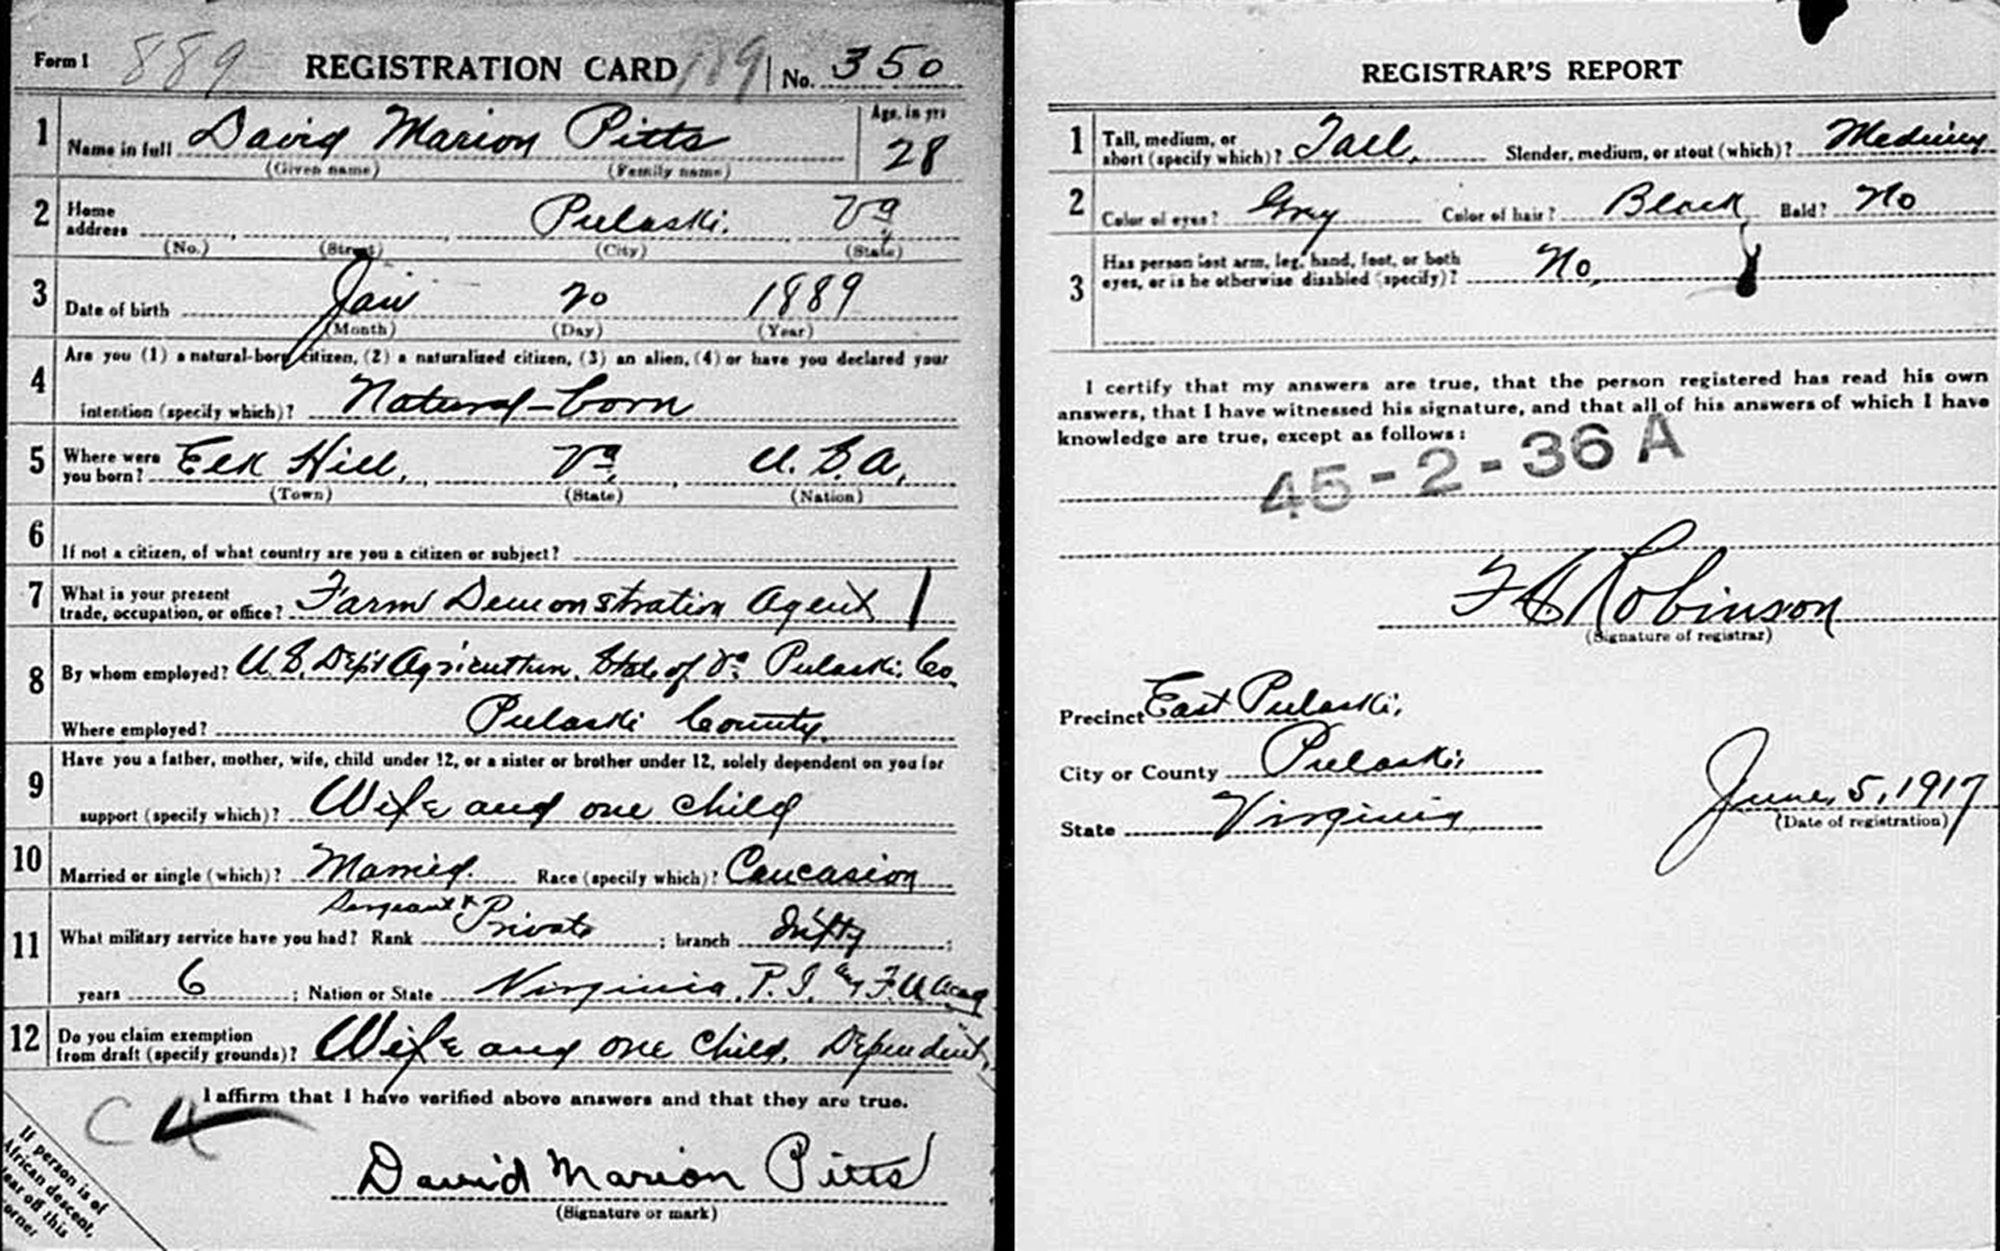 Form 1 889 REGISTRATION CARD 189 No. 350
1 Name in full David Marion Pitts Age, in yrs 28
(Given name) (Family name)
2 Home address Pulaski, Va
(No.) (Street) (City) (State)
3 Date of birth Jan 20 1889
(Month) (Day) (Year)
4 Are you (1) a natural-born citizen, (2) a naturalized citizen, (3) an alien, (4) or have you declared your
intention (specify which)? Natural-born
5 Where were you born? Elk Hill, Va. U.S.A.
(Town) (State) (Nation)
6 If not a citizen, of what country are you a citizen or subject?
7 What is your present trade, occupation, or office? Farm Demonstration Agent
8 By whom employed? U.S. Dept Agriculture, State of Va Pulaski Co
Where employed? Pulaski County.
9 Have you a father, mother, wife, child under 12, or a sister or brother under 12, solely dependent on you for
support (specify which)? Wife and one child
10 Married or single (which)? Married. Race (specify which)? Caucasion
Sergeant &
11 What military service have you had? Rank Private ; branch Infty ;
years 6 ; Nation or State Virginia, P. I. and F. U. Acad
12 Do you claim exemption from draft (specify grounds)? Wife and one child, Dependent,
I affirm that I have verified above answers and that they are true.
David Marion Pitts
(Signature or mark)
If person is of
African descent,
tear off this
corner
REGISTRAR'S REPORT
1 Tall, medium, or short (specify which)? Tall, Slender, medium, or stout (which)? Medium
2 Color of eyes? Grey Color of hair? Black Bald? No
3 Has person lost arm, leg, hand, foot, or both
eyes, or is he otherwise disabled (specify)? No,
I certify that my answers are true, that the person registered has read his own
answers, that I have witnessed his signature, and that all of his answers of which I have
knowledge are true, except as follows:
45-2-36 A
Robinson
(Signature of registrar)
Precinct East Pulaski,
City or County Pulaski,
State Virginia
June, 5, 1917
(Date of registration)